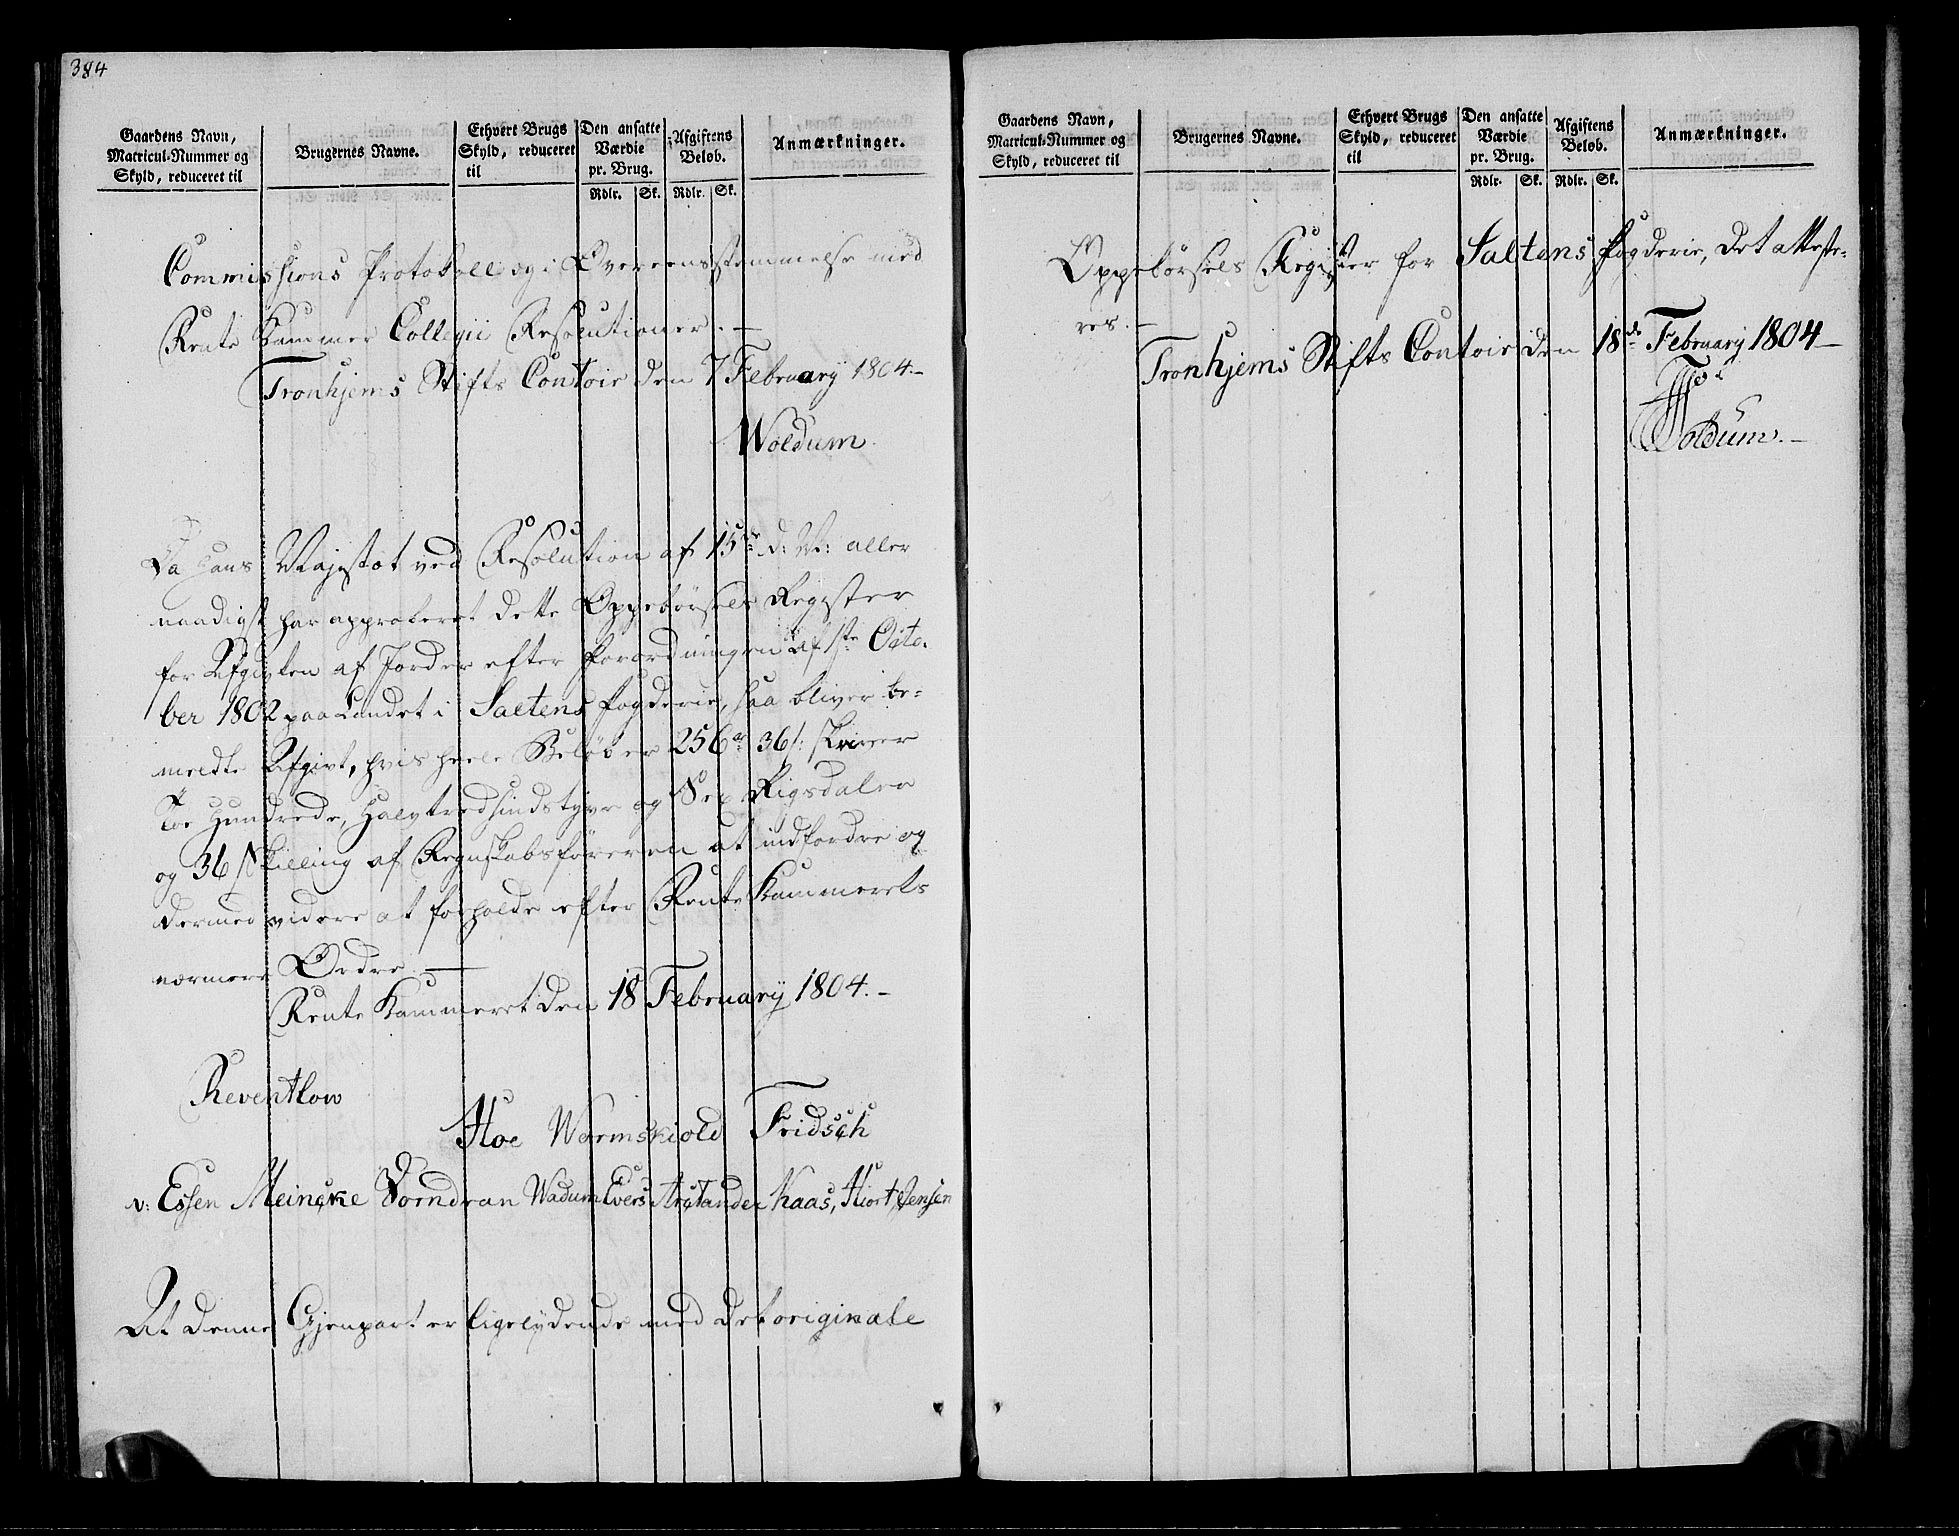 384
Gaardens Navn,
Matricul-Nummer og
Skyld, reduceret til
Brugernes Navne.
Ethvert Brugs
Skyld, reduceret
til
Den ansatte
Værdie
pr. Brug.
Rdlr. Sk.
Afgiftens
Beløb.
Rdlr. Sk.
Anmærkninger.
Commissions Protokoll og i Overeensstemmelse med
Rente Kammer Collegii Resolutioner. —
Tronhjems Stifts Contoir den 7 February 1804. —
Woldum.
Da Hans Majestæt ved Resolution af 15de d: M: aller
naadigst har approberet dette Oppebørsels Register
for Afgivten af Jorder efter Forordningen af 1ste Octo-
ber 1802 paa Landet i Saltens Fogderie, saa bliver be-
meldte Afgivt, hvis heele Beløb er 256 rd 36 s: skriver
Toe Hundrede, Halvtredsindstyve og Sex Rigsdaler
og 36 Skilling af Regnskabsføreren at indfordre og
dermed videre at forholde efter Rente Kammerets
nærmere Ordre. —
Rente Kammeret den 18 February 1804. —
Reventlow
Hoe Wormskiold Fridsch
v: Essen Meincke Dorndran Wadum Evers Arctander Kaas, Hiort, Jensen
At denne Gjenpart er ligelydende med det originale
Gaardens Navn,
Matricul-Nummer og
Skyld, reduceret til
Brugernes Navne.
Ethvert Brugs
Skyld, reduceret
til
Den ansatte
Værdie
pr. Brug.
Rdlr. Sk.
Afgiftens
Beløb.
Rdlr. Sk.
Anmærkninger.
Oppebørsels Register for Saltens Fogderie, det atteste-
res. —
Tronhjems Stifts Contoir den 18de February 1804 —
Woldum. —